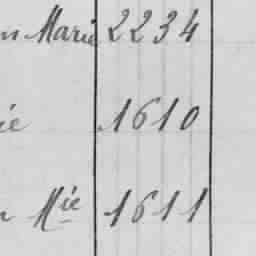 Marie 2234
1610
Mie 1611